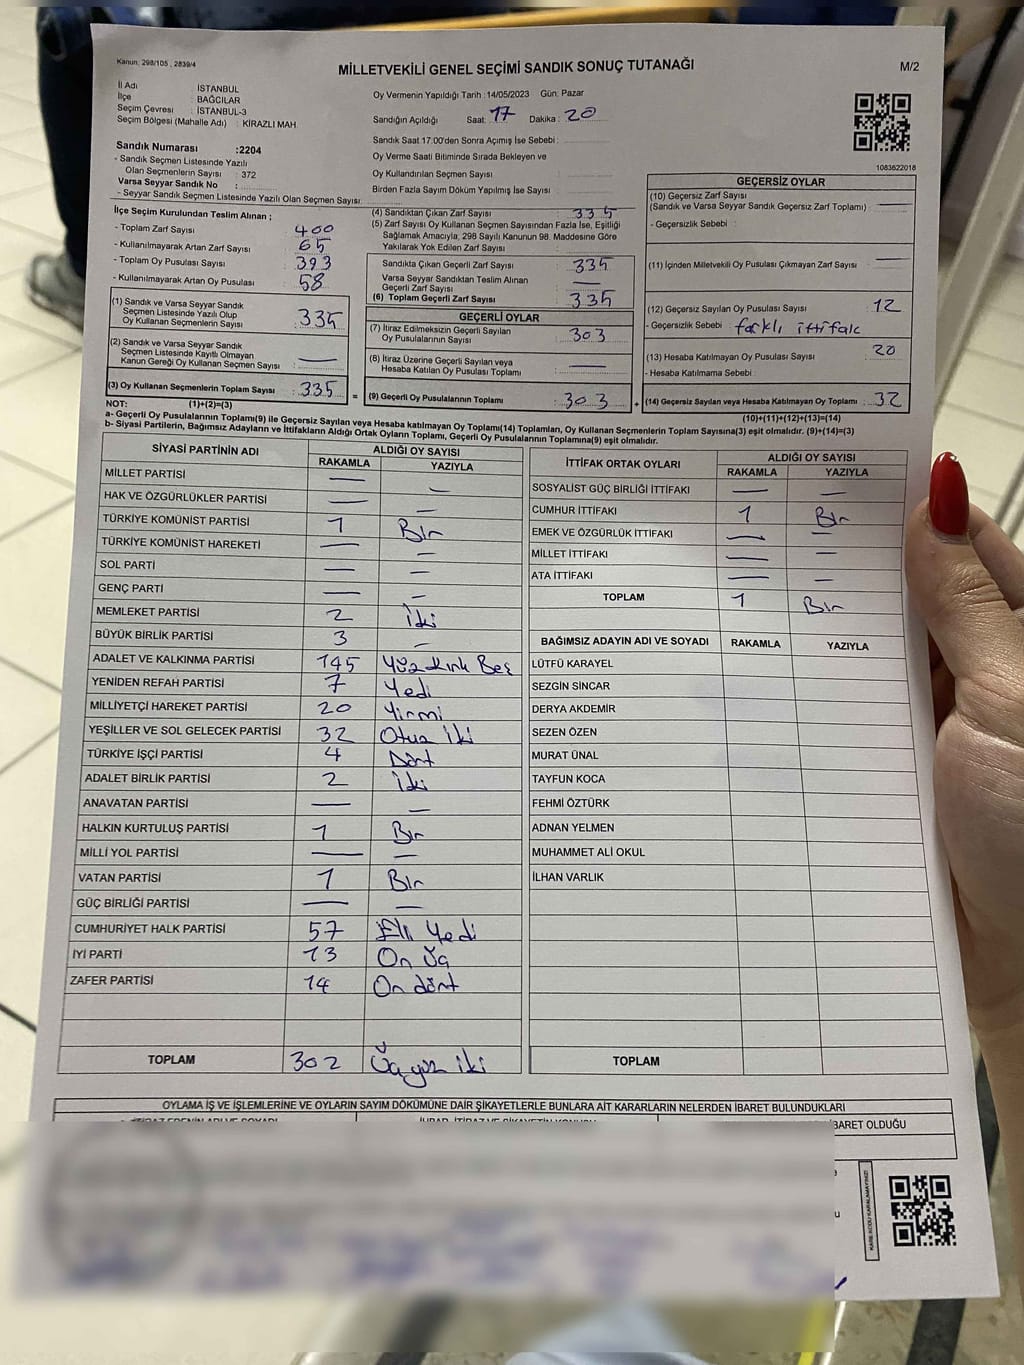 Kanun: 298/105 , 2839/4
MİLLETVEKİLİ GENEL SEÇİMİ SANDIK SONUÇ TUTANAĞI
M/2
İl Adı : İSTANBUL
İlçe : BAĞCILAR
Seçim Çevresi : İSTANBUL-3
Seçim Bölgesi (Mahalle Adı) : KİRAZLI MAH.
Oy Vermenin Yapıldığı Tarih : 14/05/2023 Gün: Pazar
Sandığın Açıldığı Saat: 17 Dakika : 20
Sandık Saat 17:00'den Sonra Açımış İse Sebebi :
Oy Verme Saati Bitiminde Sırada Bekleyen ve
Oy Kullandırılan Seçmen Sayısı :
Birden Fazla Sayım Döküm Yapılmış İse Sayısı :
1083622018
Sandık Numarası :2204
- Sandık Seçmen Listesinde Yazılı
Olan Seçmenlerin Sayısı : 372
Varsa Seyyar Sandık No :
- Seyyar Sandık Seçmen Listesinde Yazılı Olan Seçmen Sayısı:
İlçe Seçim Kurulundan Teslim Alınan ;
- Toplam Zarf Sayısı : 400
- Kullanılmayarak Artan Zarf Sayısı : 65
- Toplam Oy Pusulası Sayısı : 393
- Kullanılmayarak Artan Oy Pusulası : 58
(1) Sandık ve Varsa Seyyar Sandık
Seçmen Listesinde Yazılı Olup
Oy Kullanan Seçmenlerin Sayısı : 335
(2) Sandık ve Varsa Seyyar Sandık
Seçmen Listesinde Kayıtlı Olmayan
Kanun Gereği Oy Kullanan Seçmen Sayısı : —
(3) Oy Kullanan Seçmenlerin Toplam Sayısı : 335 =
(4) Sandıktan Çıkan Zarf Sayısı : 335
(5) Zarf Sayısı Oy Kullanan Seçmen Sayısından Fazla İse, Eşitliği
Sağlamak Amacıyla, 298 Sayılı Kanunun 98. Maddesine Göre
Yakılarak Yok Edilen Zarf Sayısı :
Sandıkta Çıkan Geçerli Zarf Sayısı : 335
Varsa Seyyar Sandıktan Teslim Alınan
Geçerli Zarf Sayısı : —
(6) Toplam Geçerli Zarf Sayısı : 335
GEÇERLİ OYLAR
(7) İtiraz Edilmeksizin Geçerli Sayılan
Oy Pusulalarının Sayısı : 303
(8) İtiraz Üzerine Geçerli Sayılan veya
Hesaba Katılan Oy Pusulası Toplamı : —
(9) Geçerli Oy Pusulalarının Toplamı : 303 +
GEÇERSİZ OYLAR
(10) Geçersiz Zarf Sayısı
(Sandık ve Varsa Seyyar Sandık Geçersiz Zarf Toplamı) : —
- Geçersizlik Sebebi :
(11) İçinden Milletvekili Oy Pusulası Çıkmayan Zarf Sayısı : —
(12) Geçersiz Sayılan Oy Pusulası Sayısı : 12
- Geçersizlik Sebebi : farklı ittifak
(13) Hesaba Katılmayan Oy Pusulası Sayısı : 20
- Hesaba Katılmama Sebebi :
(14) Geçersiz Sayılan veya Hesaba Katılmayan Oy Toplamı : 32
NOT: (1)+(2)=(3)
(10)+(11)+(12)+(13)=(14)
a- Geçerli Oy Pusulalarının Toplamı(9) ile Geçersiz Sayılan veya Hesaba katılmayan Oy Toplamı(14) Toplamları, Oy Kullanan Seçmenlerin Toplam Sayısına(3) eşit olmalıdır. (9)+(14)=(3)
b- Siyasi Partilerin, Bağımsız Adayların ve İttifakların Aldığı Ortak Oyların Toplamı, Geçerli Oy Pusulalarının Toplamına(9) eşit olmalıdır.
SİYASİ PARTİNİN ADI ALDIĞI OY SAYISI
RAKAMLA YAZIYLA
MİLLET PARTİSİ — —
HAK VE ÖZGÜRLÜKLER PARTİSİ — —
TÜRKİYE KOMÜNİST PARTİSİ 1 Bir
TÜRKİYE KOMÜNİST HAREKETİ — —
SOL PARTİ — —
GENÇ PARTİ — —
MEMLEKET PARTİSİ 2 İki
BÜYÜK BİRLİK PARTİSİ 3 —
ADALET VE KALKINMA PARTİSİ 145 Yüz Kırk Beş
YENİDEN REFAH PARTİSİ 7 Yedi
MİLLİYETÇİ HAREKET PARTİSİ 20 Yirmi
YEŞİLLER VE SOL GELECEK PARTİSİ 32 Otuz İki
TÜRKİYE İŞÇİ PARTİSİ 4 Dört
ADALET BİRLİK PARTİSİ 2 İki
ANAVATAN PARTİSİ — —
HALKIN KURTULUŞ PARTİSİ 1 Bir
MİLLİ YOL PARTİSİ — —
VATAN PARTİSİ 1 Bir
GÜÇ BİRLİĞİ PARTİSİ — —
CUMHURİYET HALK PARTİSİ 57 Elli Yedi
İYİ PARTİ 13 On Üç
ZAFER PARTİSİ 14 On dört
TOPLAM 302 Üçyüz iki
İTTİFAK ORTAK OYLARI ALDIĞI OY SAYISI
RAKAMLA YAZIYLA
SOSYALİST GÜÇ BİRLİĞİ İTTİFAKI — —
CUMHUR İTTİFAKI 1 Bir
EMEK VE ÖZGÜRLÜK İTTİFAKI — —
MİLLET İTTİFAKI — —
ATA İTTİFAKI — —
TOPLAM 1 Bir
BAĞIMSIZ ADAYIN ADI VE SOYADI RAKAMLA YAZIYLA
LÜTFÜ KARAYEL
SEZGİN SİNCAR
DERYA AKDEMİR
SEZEN ÖZEN
MURAT ÜNAL
TAYFUN KOCA
FEHMİ ÖZTÜRK
ADNAN YELMEN
MUHAMMET ALİ OKUL
İLHAN VARLIK
TOPLAM
OYLAMA İŞ VE İŞLEMLERİNE VE OYLARIN SAYIM DÖKÜMÜNE DAİR ŞİKAYETLERLE BUNLARA AİT KARARLARIN NELERDEN İBARET BULUNDUKLARI
İBARET OLDUĞU